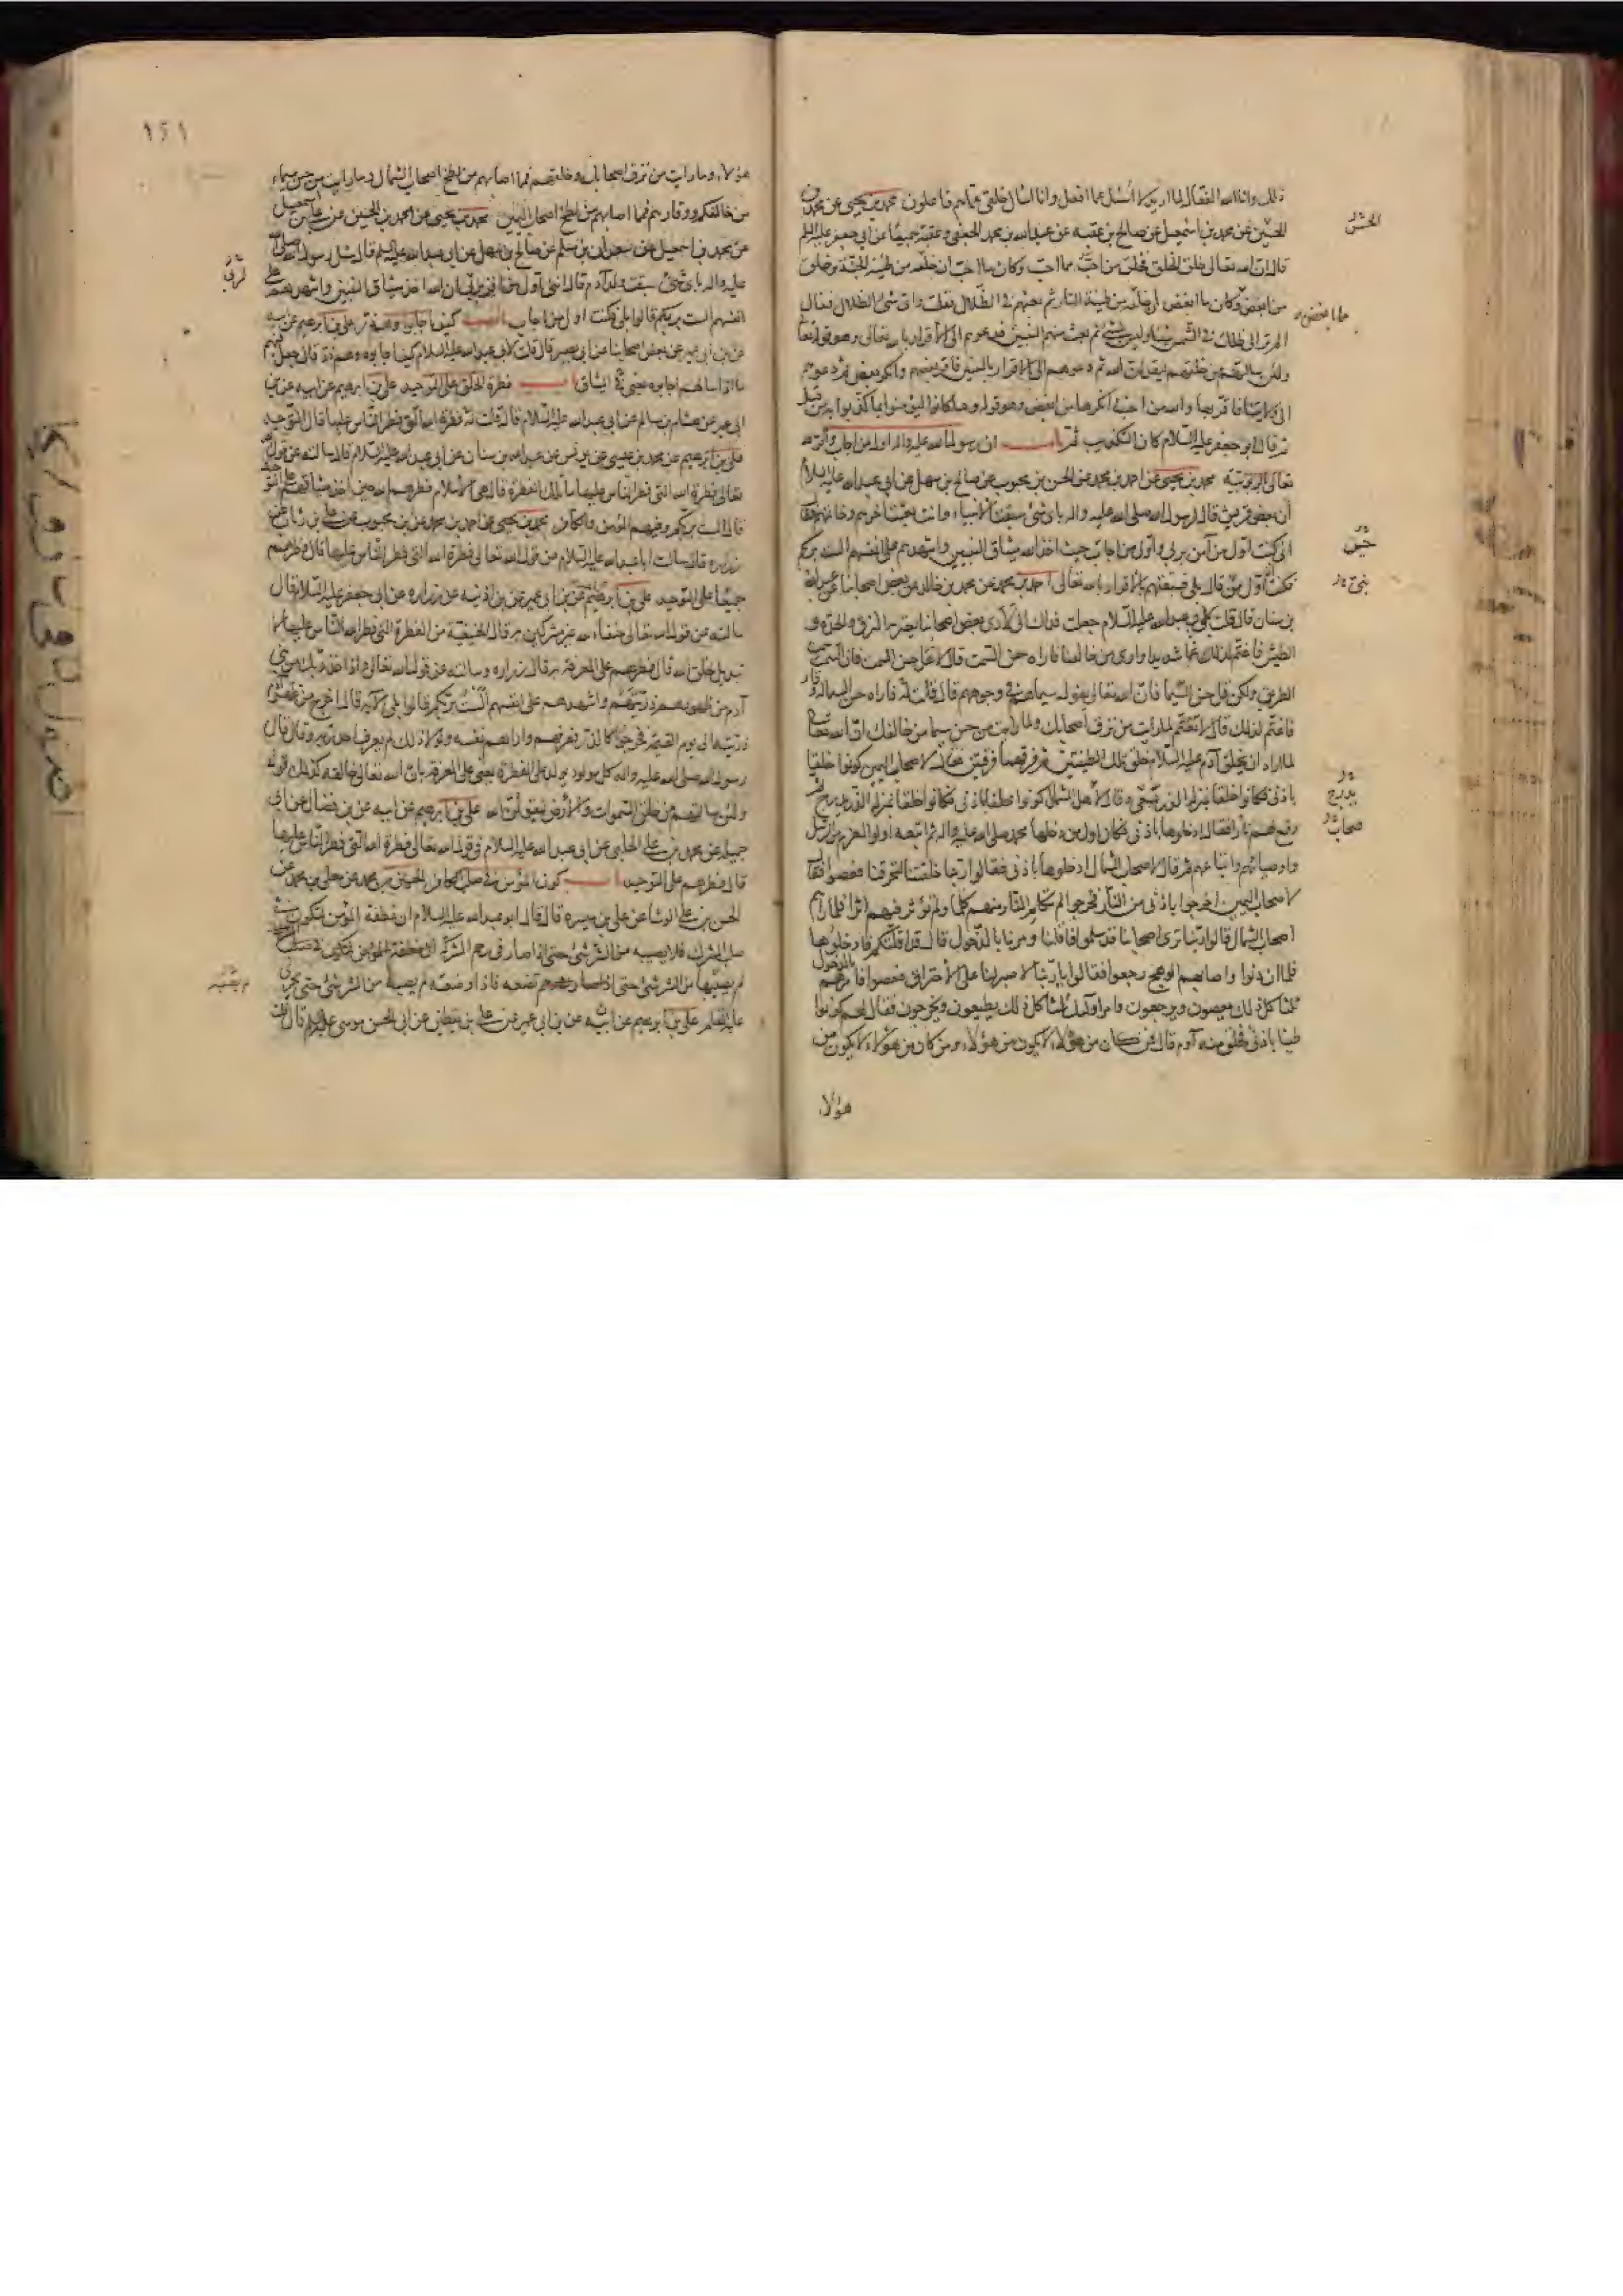 ذلك وانا الله الفعال لما اريد لا أسئل عما افعل وانا اسأل خلقى عما هم فاعلون محمد بن يحيى عن محمد بن
الحسين عن محمد بن اسمعيل عن صالح بن عقبه عن عبدالله بن محمد الجعفى وعقبة جميعًا عن ابي جعفر عليه السلم
قال ان الله تعالى خلق الخلق فخلق من احبّ مما احبّ وكان ما احبّ ان خلقه من طينة الجنّة وخلق
من ابغض وكان ما ابغض ان خلقه من طينة النار ثم بعثهم في الظّلال فقلت واى شئ الظلال فقال
الم تر الى ظلك في الشمس شيئا وليس بشئ ثم بعث منهم النبيين فدعوهم الى الاقرار بالله تعالى وهو قوله تعالى
ولئن سالتهم من خلقهم ليقولن الله ثم دعوهم الى الاقرار بالنبيين فاقر بعضهم وانكر بعض ثم دعوهم
الى ولايتنا فاقر بها والله من احبّ وانكرها من ابغض وهو قوله وما كانوا ليؤمنوا بما كذبوا به من قبل
ثم قال ابو جعفر عليه السّلام كان التكذيب ثمّ باب ان رسول الله صلى الله عليه واله اول من اجاب واقر لله
تعالى بالربوبيّة محمد بن يحيى عن احمد بن محمد عن الحسن بن محبوب عن صالح بن سهل عن ابي عبدالله عليه السلام
أن بعض قريش قال لرسول الله صلى الله عليه واله باى شئ سبقت الانبياء وانت بعثت اخرهم وخاتمهم فقال
انى كنت اوّل من آمن بربى واوّل من اجاب حيث اخذ الله ميثاق النبيين واشهدهم على انفسهم الست بربكم
فكنت أنا اول من قال بلى فسبقتهم بالاقرار بالله تعالى احمد بن محمد عن محمد بن خالد عن بعض اصحابنا عن عبدالله
بن سنان قال قلت لابى عبدالله عليه السلام جعلت فداك انى لأرى بعض اصحابنا يعتريه النزق والحدّة و
الطيش فاغتم لذلك غما شديدا وارى من خالفنا فاراه حسن السمت قال لا تقل حسن السمت فان السمت سمت
الطريق ولكن قل حسن السّيما فان الله تعالى يقول سيماهم في وجوههم قال قلت له فاراه حسن السيما له وقار
فاغتم لذلك قال لا تغتم لما رايت من نزق اصحابك ولما رايت من حسن سيما من خالفك ان الله تعالى
لما اراد ان يخلق آدم عليه السّلام خلق تلك الطينتين ثم فرقهما فرقتين فقال لاصحاب اليمين كونوا خلقا
باذنى فكانوا خلقا بمنزله الذر يسعى وقال لاهل الشمال كونوا خلقا باذنى فكانوا خلقا بمنزله الذر يدرج ثم
رفع لهم نارا فقال ادخلوها باذنى فكان اول من دخلها محمد صلى الله عليه واله ثم اتبعه اولوا العزم من الرّسل
واوصيائهم واتباعهم ثم قال لاصحاب الشمال ادخلوها باذنى فقالوا ربنا خلقتنا لتحرقنا فعصوا فقال
لاصحاب اليمين اخرجوا باذنى من النّار فخرجوا لم تكلم النّار منهم كلما ولم تؤثر فيهم اثرا فلما رآهم
اصحاب الشمال قالوا ربّنا نرى اصحابنا قد سلموا فاقلنا ومرنا بالدّخول قال قد اقلتكم فادخلوها
فلما ان دنوا واصابهم الوهج رجعوا فقالوا يا ربّنا لا صبر لنا على الاحتراق فعصوا فامرهم بالدخول
ثلثا كل ذلك يعصون ويرجعون وامر اولئك ثلثا كل ذلك يطيعون ويخرجون فقال لهم كونوا
طينا باذنى فخلق منه آدم قال فمن كان من هؤلاء لا يكون من هؤلاء ومن كان من هؤلاء لا يكون من
هؤلاء
الحسن
حين
يدرج
اصحاب
١٤١
هؤلاء وما رايت من نزق اصحابك وخلقهم فمما اصابهم من لطخ اصحاب الشمال وما رايت من حسن سيماء
من خالفكم ووقارهم فمما اصابهم من لطخ اصحاب اليمين محمد بن يحيى عن محمد بن الحسين عن على بن اسمعيل
عن محمد بن اسمعيل عن سعدان بن مسلم عن صالح بن سهل عن ابى عبدالله عليه السلم قال سئل رسول الله صلى الله
عليه واله باى شئ سبقت ولد آدم قال اننى اول من اقر بربى ان الله اخذ ميثاق النبيين واشهدهم على
انفسهم الست بربكم قالوا بلى فكنت اول من اجاب باب كيف اجابوا وهم ذر على بن ابرهيم عن ابيه
عن بن ابى عمير عن بعض اصحابنا عن ابى بصير قال قلت لابى عبدالله عليه السلام كيف اجابوه وهم ذر قال جعل فيهم
ما اذا سالهم اجابوه يعنى في الميثاق باب فطرة الخلق على التوحيد على بن ابرهيم عن ابيه عن بن
ابى عمير عن هشام بن سالم عن ابى عبدالله عليه السّلام قال قلت له فطرة الله التى فطر الناس عليها قال التوحيد
على بن ابرهيم عن محمد بن عيسى عن يونس عن عبدالله بن سنان عن ابى عبدالله عليه السّلام قال سالته عن قول الله
تعالى فطرة الله التى فطر الناس عليها ما تلك الفطرة قال هى الاسلام فطرهم الله حين اخذ ميثاقهم على التوحيد
قال الست بربكم وفيهم المؤمن والكافر محمد بن يحيى عن احمد بن محمد عن بن محبوب عن على بن رئاب عن
زراره قال سالت اباعبدالله عليه السّلام عن قول الله تعالى فطرة الله التى فطر الناس عليها قال فطرهم
جميعًا على التوحيد على بن ابرهيم عن ابيه عن بن ابى عمير عن بن اذينه عن زراره عن ابى جعفر عليه السّلام قال
سالته عن قول الله تعالى حنفاء لله غير مشركين به قال الحنيفية من الفطرة التى فطر الله الناس عليها لا
تبديل لخلق الله قال فطرهم على المعرفة به قال زراره وسالته عن قول الله تعالى واذ اخذ ربك من بنى
آدم من ظهورهم ذريّتهم واشهدهم على انفسهم الست بربكم قالوا بلى الآيه قال اخرج من ظهر آدم
ذريّته الى يوم القيمة فخرجوا كالذر فعرفهم واراهم نفسه ولولا ذلك لم يعرف احد ربه وقال قال
رسول الله صلى الله عليه واله كل مولود يولد على الفطرة يعنى على المعرفة بان الله تعالى خالقه كذلك قوله
ولئن سالتهم من خلق السّموات والأرض ليقولن الله على بن ابرهيم عن ابيه عن بن فضال عن ابى
جميله عن محمد بن على الحلبى عن ابى عبدالله عليه السلام في قول الله تعالى فطرة الله التى فطر الناس عليها
قال فطرهم على التوحيد باب كون المؤمن في صلب الكافر الحسين بن محمد عن معلى بن محمد عن
الحسن بن على الوشا عن على بن ميسره قال قال ابو عبدالله عليه السلام ان نطفة المؤمن لتكون في
صلب المشرك فلا يصيبه من الشر شئ حتى اذا صار في رحم المشركة
لم يصبها من الشر شئ حتى تضعه فاذا وضعته لم يصبه من الشر شئ حتى يجرى
عليه القلم على بن ابرهيم عن ابيه عن بن ابى عمير عن على بن يقطين عن ابى الحسن موسى عليه السلم قال قلت